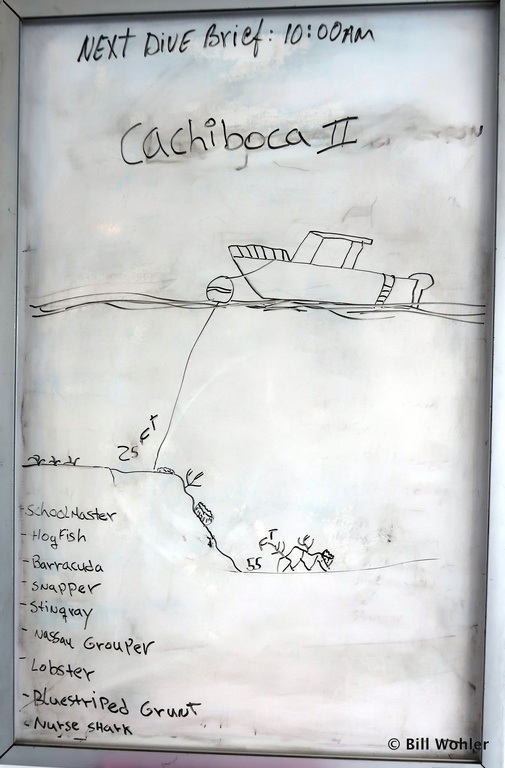 NEXT DIVE Brief: 10:00AM
Cachiboca II
25 FT
55 FT
- SCHOOLMASTER
- HogFish
- Barracuda
- SNAPPER
- Stingray
- NASSAU GROUPER
- Lobster
- Bluestriped Grunt
- Nurse shark
© Bill Wohler